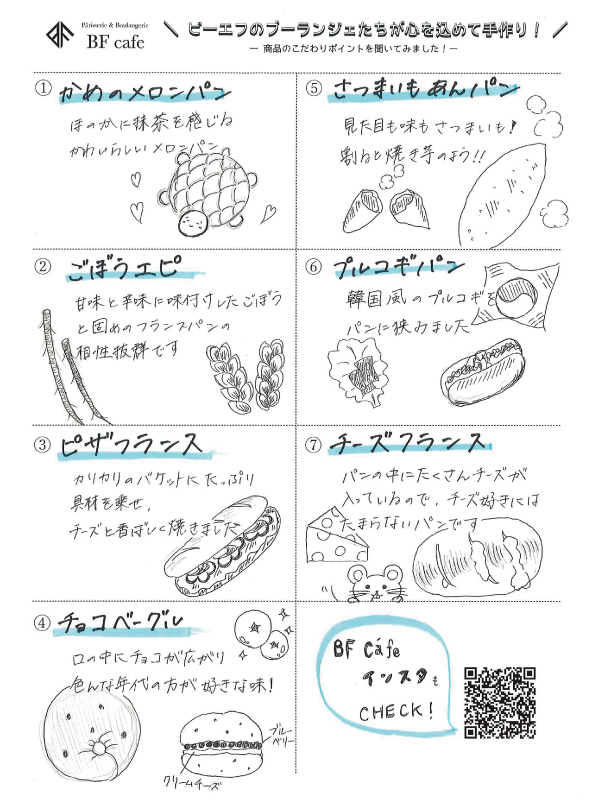 Pâtisserie & Boulangerie
BF cafe
ビーエフのブーランジェたちが心を込めて手作り！
ー 商品のこだわりポイントを聞いてみました！ー
① かめのメロンパン
ほのかに抹茶を感じる
かわいらしいメロンパン
② ごぼうエピ
甘味と辛味に味付けしたごぼう
と固めのフランスパンの
相性抜群です
③ ピザフランス
カリカリのバケットにたっぷり
具材を乗せ、
チーズと香ばしく焼きました
④ チョコベーグル
口の中にチョコが広がり
色んな年代の方が好きな味！
ブルー
ベリー
クリームチーズ
⑤ さつまいもあんパン
見た目も味もさつまいも！
割ると焼き芋のよう!!
⑥ プルコギパン
韓国風のプルコギを
パンに挟みました
⑦ チーズフランス
パンの中にたくさんチーズが
入っているので、チーズ好きには
たまらないパンです
BF Cáfe
インスタも
CHECK!